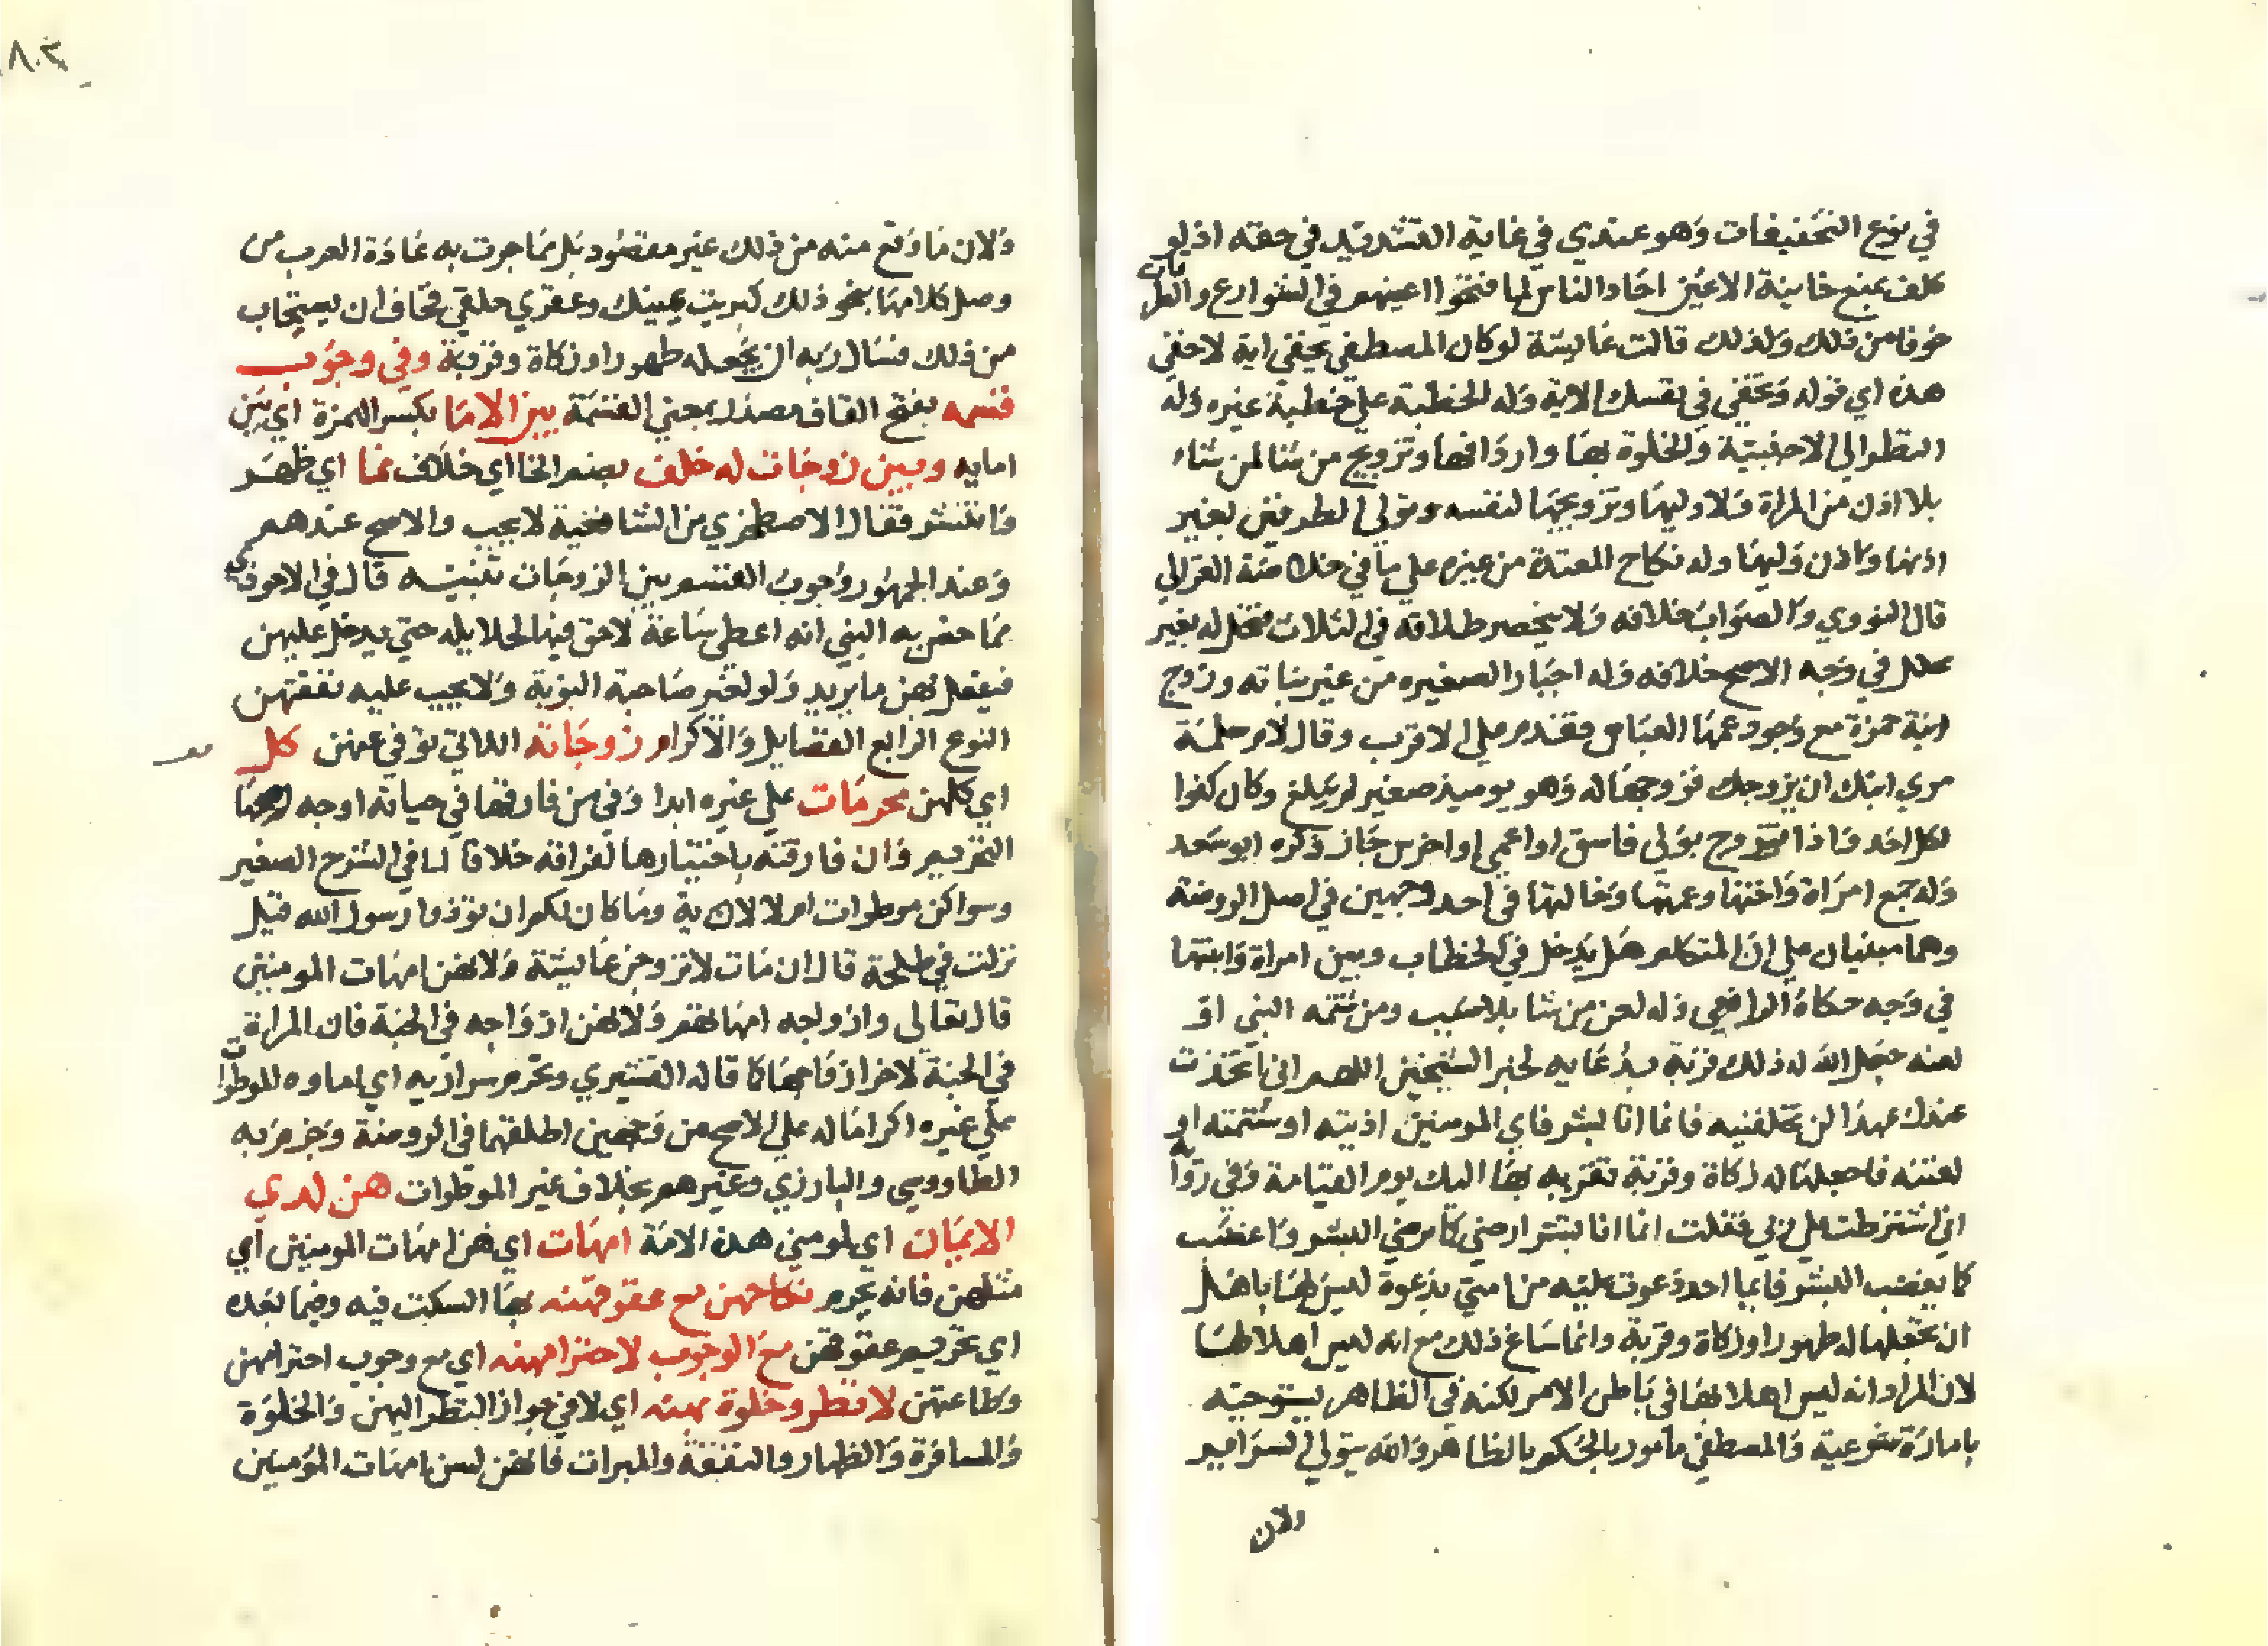 في نوع التخفيفات وهو عندي في غاية التشديد في حقه اذ لو
كلف بمنع خاينة الاعين احاد الناس لما فتحوا اعينهم في الشوارع والطرقات
خوفا من ذلك ولذلك قالت عايشة لوكان المصطفى يخفي اية لاخفى
هذه اي قوله وتخفي في نفسك الاية وله الخطبة على خطبة غيره وله
النظر الى الاجنبية والخلوة بها واردافها وتزويج من شا لمن شاء
بلا اذن من المراة ولا وليها وتزويجها لنفسه وتولى الطرفين بغير
اذنها واذن وليها وله نكاح المعتدة من غيره على ما في خلاصة الغزالي
قال النووي والصواب خلافه ولا ينحصر طلاقه في الثلاث فتحل له بغير
محلل في وجه الاصح خلافه وله اجبار الصغيره من غير بناته وزوج
ابنة حمزة مع وجود عمها العباس فقدم على الاقرب وقال لام سلمة
مري ابنك ان يزوجك فزوجها له وهو يوميذ صغير لم يبلغ وكان كفوا
لكل احد واذا تزوج بولي فاسق او اعمى او اخرس جاز ذكره ابو سعد
وله جمع امراة واختها وعمتها وخالتها في احد وجهين في اصل الروضة
وهما مبنيان على ان المتكلم هل يدخل في الخطاب وبين امراة وابنتها
في وجه حكاه الرافعي وله لعن من شا بلا سبب ومن شتمه النبي او
لعنه جعل الله له ذلك قربة بدعايه لخبر الشيخين اللهم اني اتخذت
عندك عهدا لن تخلفنيه فانما انا بشر فاي المومنين اذيته او شتمته او
لعنته فاجعلها له زكاة وقربة تقربه بها اليك يوم القيامة وفي رواية
اني اشترطت على ربي فقلت انما انا بشر ارضى كما يرضى البشر واغضب
كما يغضب البشر فايما احد دعوت عليه من امتي بدعوة ليس لها باهل
ان تجعلها له طهورا وزكاة وقربة وانما ساغ ذلك مع انه ليس اهلا لها
لان المراد انه ليس اهلا بها في باطن الامر لكنه في الظاهر يستوجبه
بامارة شرعية والمصطفى مامور بالحكم بالظاهر والله يتولى السراير
ولان
٨٠٢
ولان ما وقع منه من ذلك غير مقصود بل مما جرت به عادة العرب من
وصل كلامها بنحو ذلك كبربت يمينك وعقرى حلقى فخاف ان يستجاب
من ذلك فسال ربه ان يجعله طهورا وزكاة وقربة وفي وجوب
قسمه بفتح القاف مصدر بمعنى القسمة بين الاما بكسر الهمزة اي بين
امايه وبين زوجات له خلف بضم الخا اي خلاف نما اي ظهر
وانتشر فقال الاصطخري من الشافعية لا يجب والاصح عندهم
وعند الجمهور وجوب القسم بين الزوجات تنبيه قال في الاحوذي
مما خص به النبي انه اعطي ساعة لا حق فيها لحلايله حتى يدخل عليهن
فيفعل بهن ما يريد ولو لغير صاحبة النوبة ولا يجيب عليه نفقتهن
النوع الرابع الفضايل والاكرام زوجاته اللاتي توفي عنهن كل
اي كلهن محرمات على غيره ابدا وفي من فارقها في حياته اوجه ارجحها
التحريم وان فارقته باختيارها لفراقه خلافا لما في الشرح الصغير
وسوا كن موطوات ام لا لاية وما كان لكم ان توذوا رسول الله قيل
نزلت في طلحة قال ان مات لاتزوجن عايشة ولانهن امهات المومنين
قال تعالى وازواجه امهاتهم ولانهن ازواجه في الجنة فان المراة
في الجنة لاخر ازواجها كما قاله القشيري وتحرم سراريه اي اماوه الموطوات
على غيره اكراما له على الاصح من وجهين اطلقهما في الروضة وجزم به
الطاووسي والبارزي وغيرهم بخلاف غير الموطوات هن لذي
الايمان اي لمومني هذه الامة امهات اي هن امهات المومنين اي
مثلهن فانه يحرم نكاحهن مع عقوقهنه بها السكت فيه وفيما بعده
اي تحريم عقوقهن مع الوجوب لاحترامهنه اي مع وجوب احترامهن
وطاعتهن لا نظر وخلوة بهنه اي لا في جواز النظر اليهن والخلوة
والمسافرة والظهار والنفقة والميراث فانهن لسن امهات المؤمنين